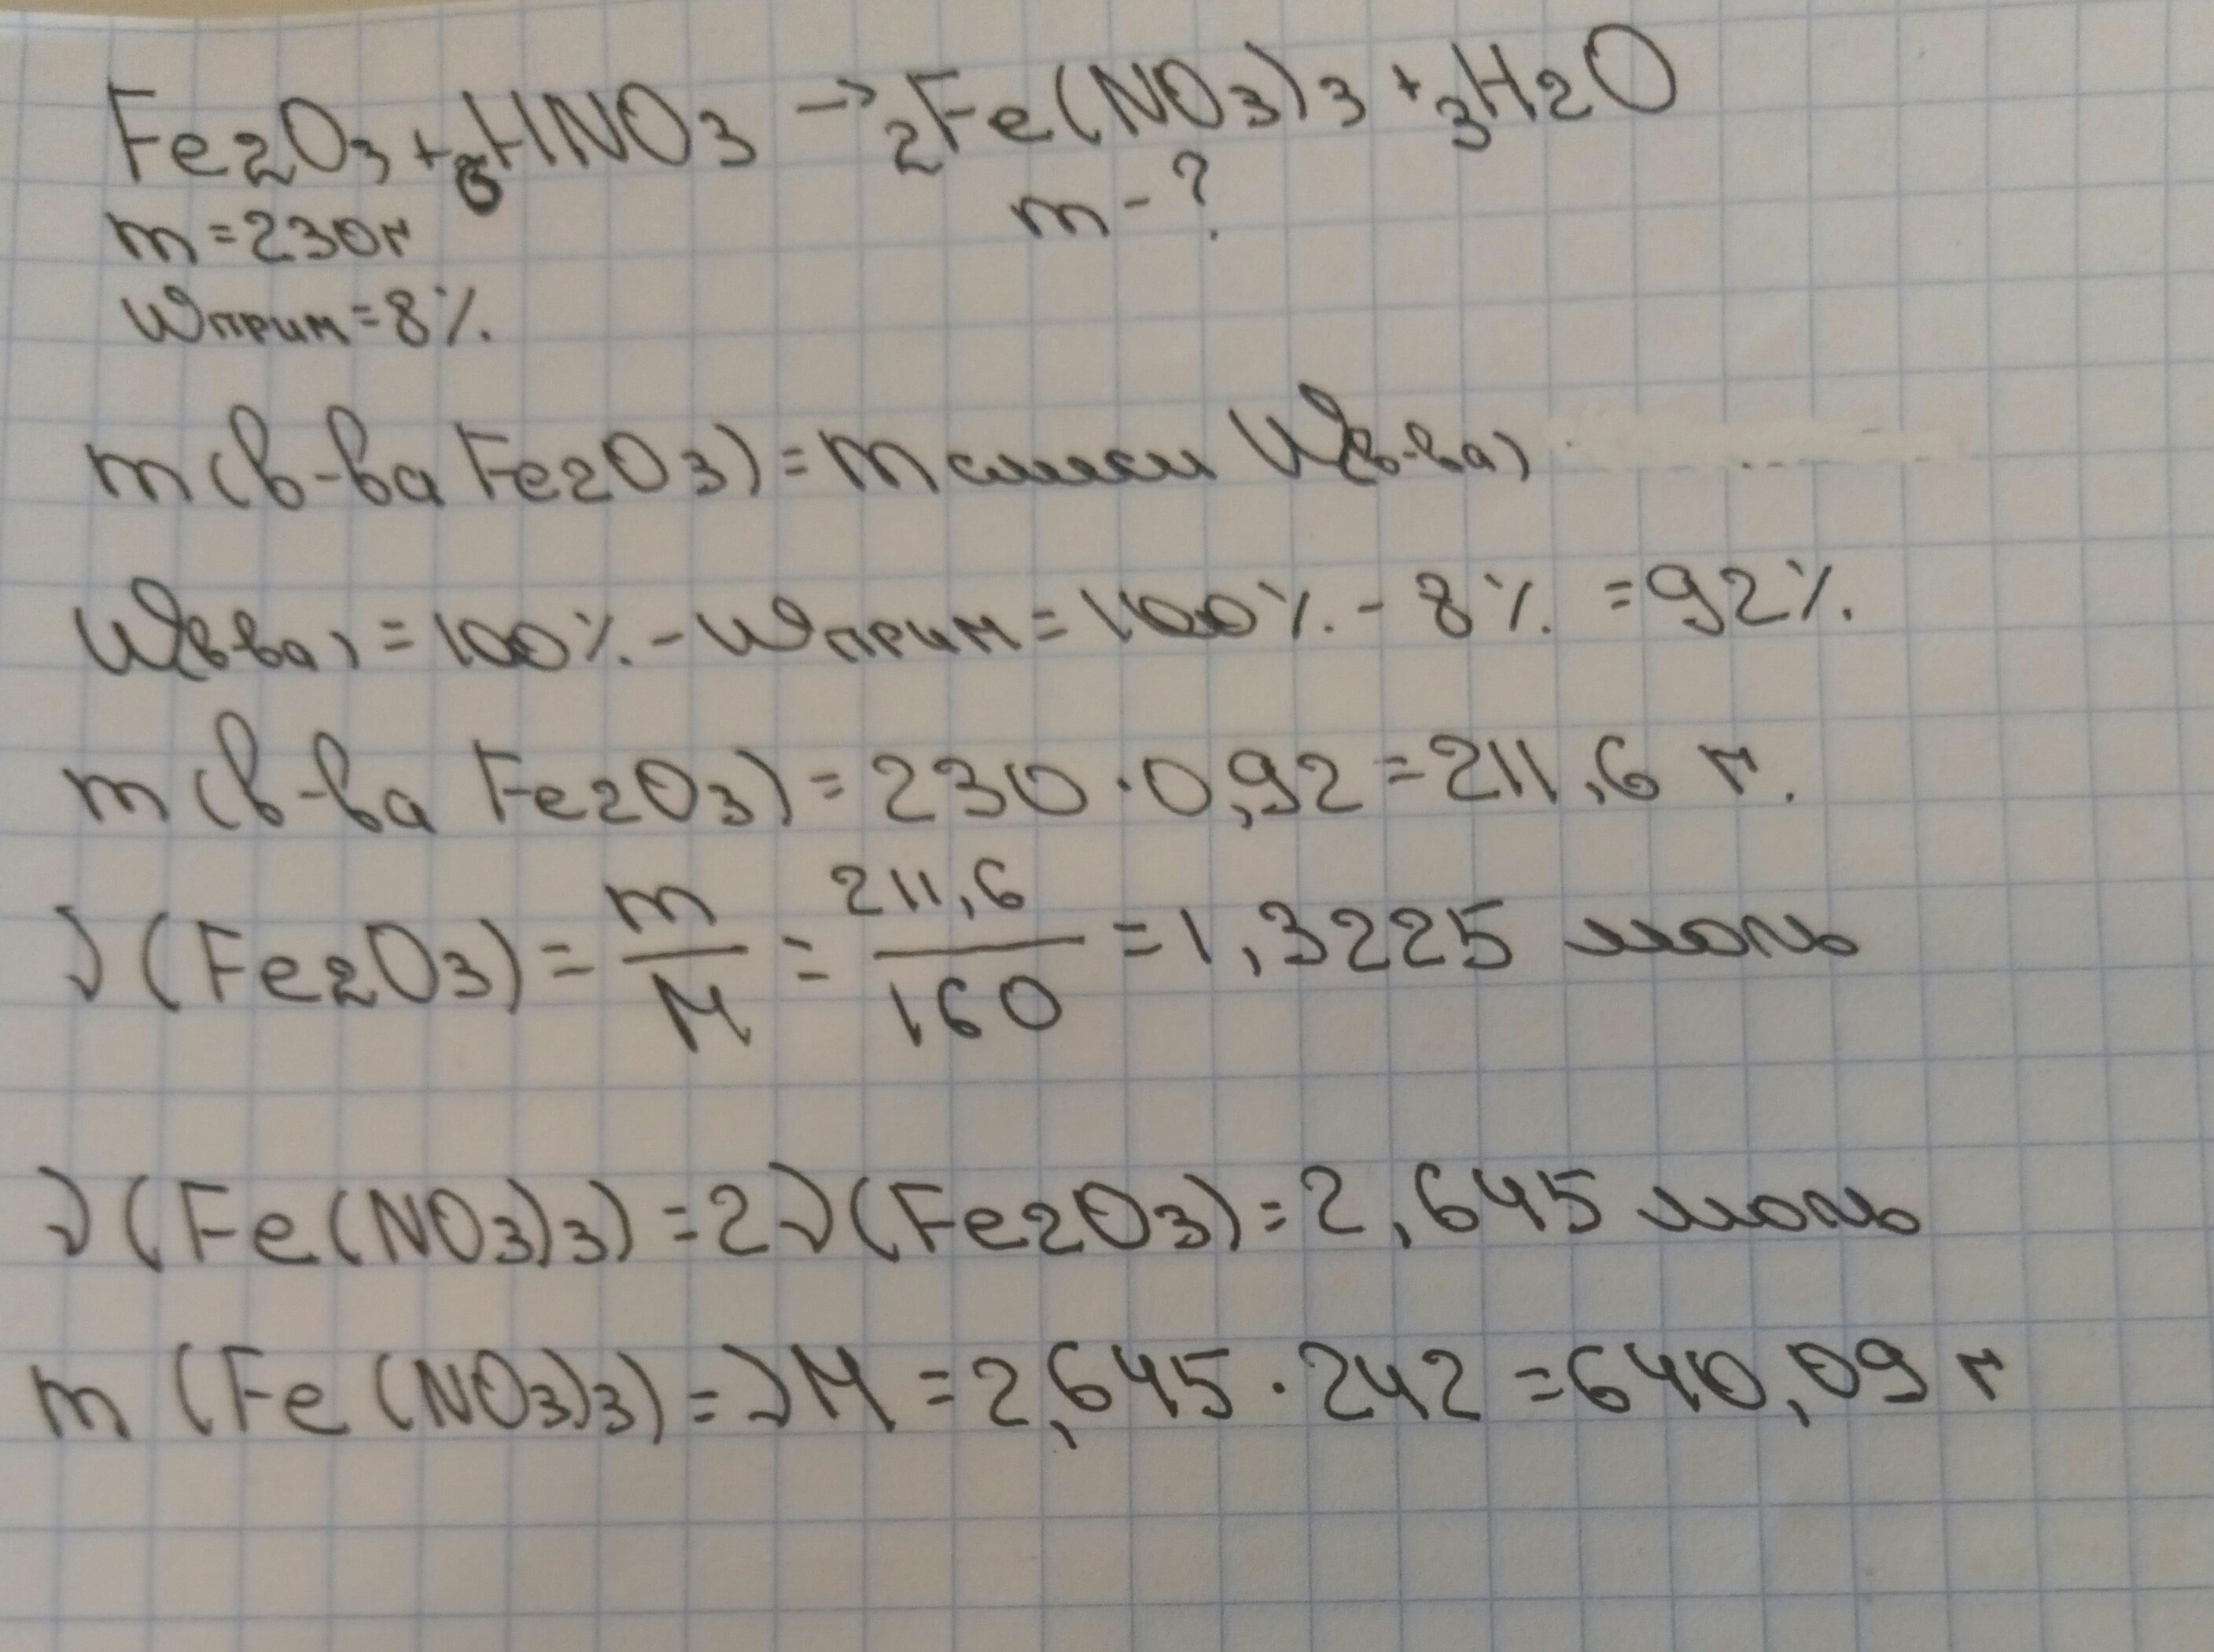 Fe2O3 + 6HNO3 → 2Fe(NO3)3 + 3H2O
m = 230г m - ?
Wприм = 8%
m(в-ва Fe2O3) = m смеси W(в-ва)
W(в-ва) = 100% - Wприм = 100% - 8% = 92%
m(в-ва Fe2O3) = 230 · 0,92 = 211,6 г.
ν(Fe2O3) = m/M = 211,6/160 = 1,3225 моль
ν(Fe(NO3)3) = 2ν(Fe2O3) = 2,645 моль
m(Fe(NO3)3) = νM = 2,645 · 242 = 640,09 г